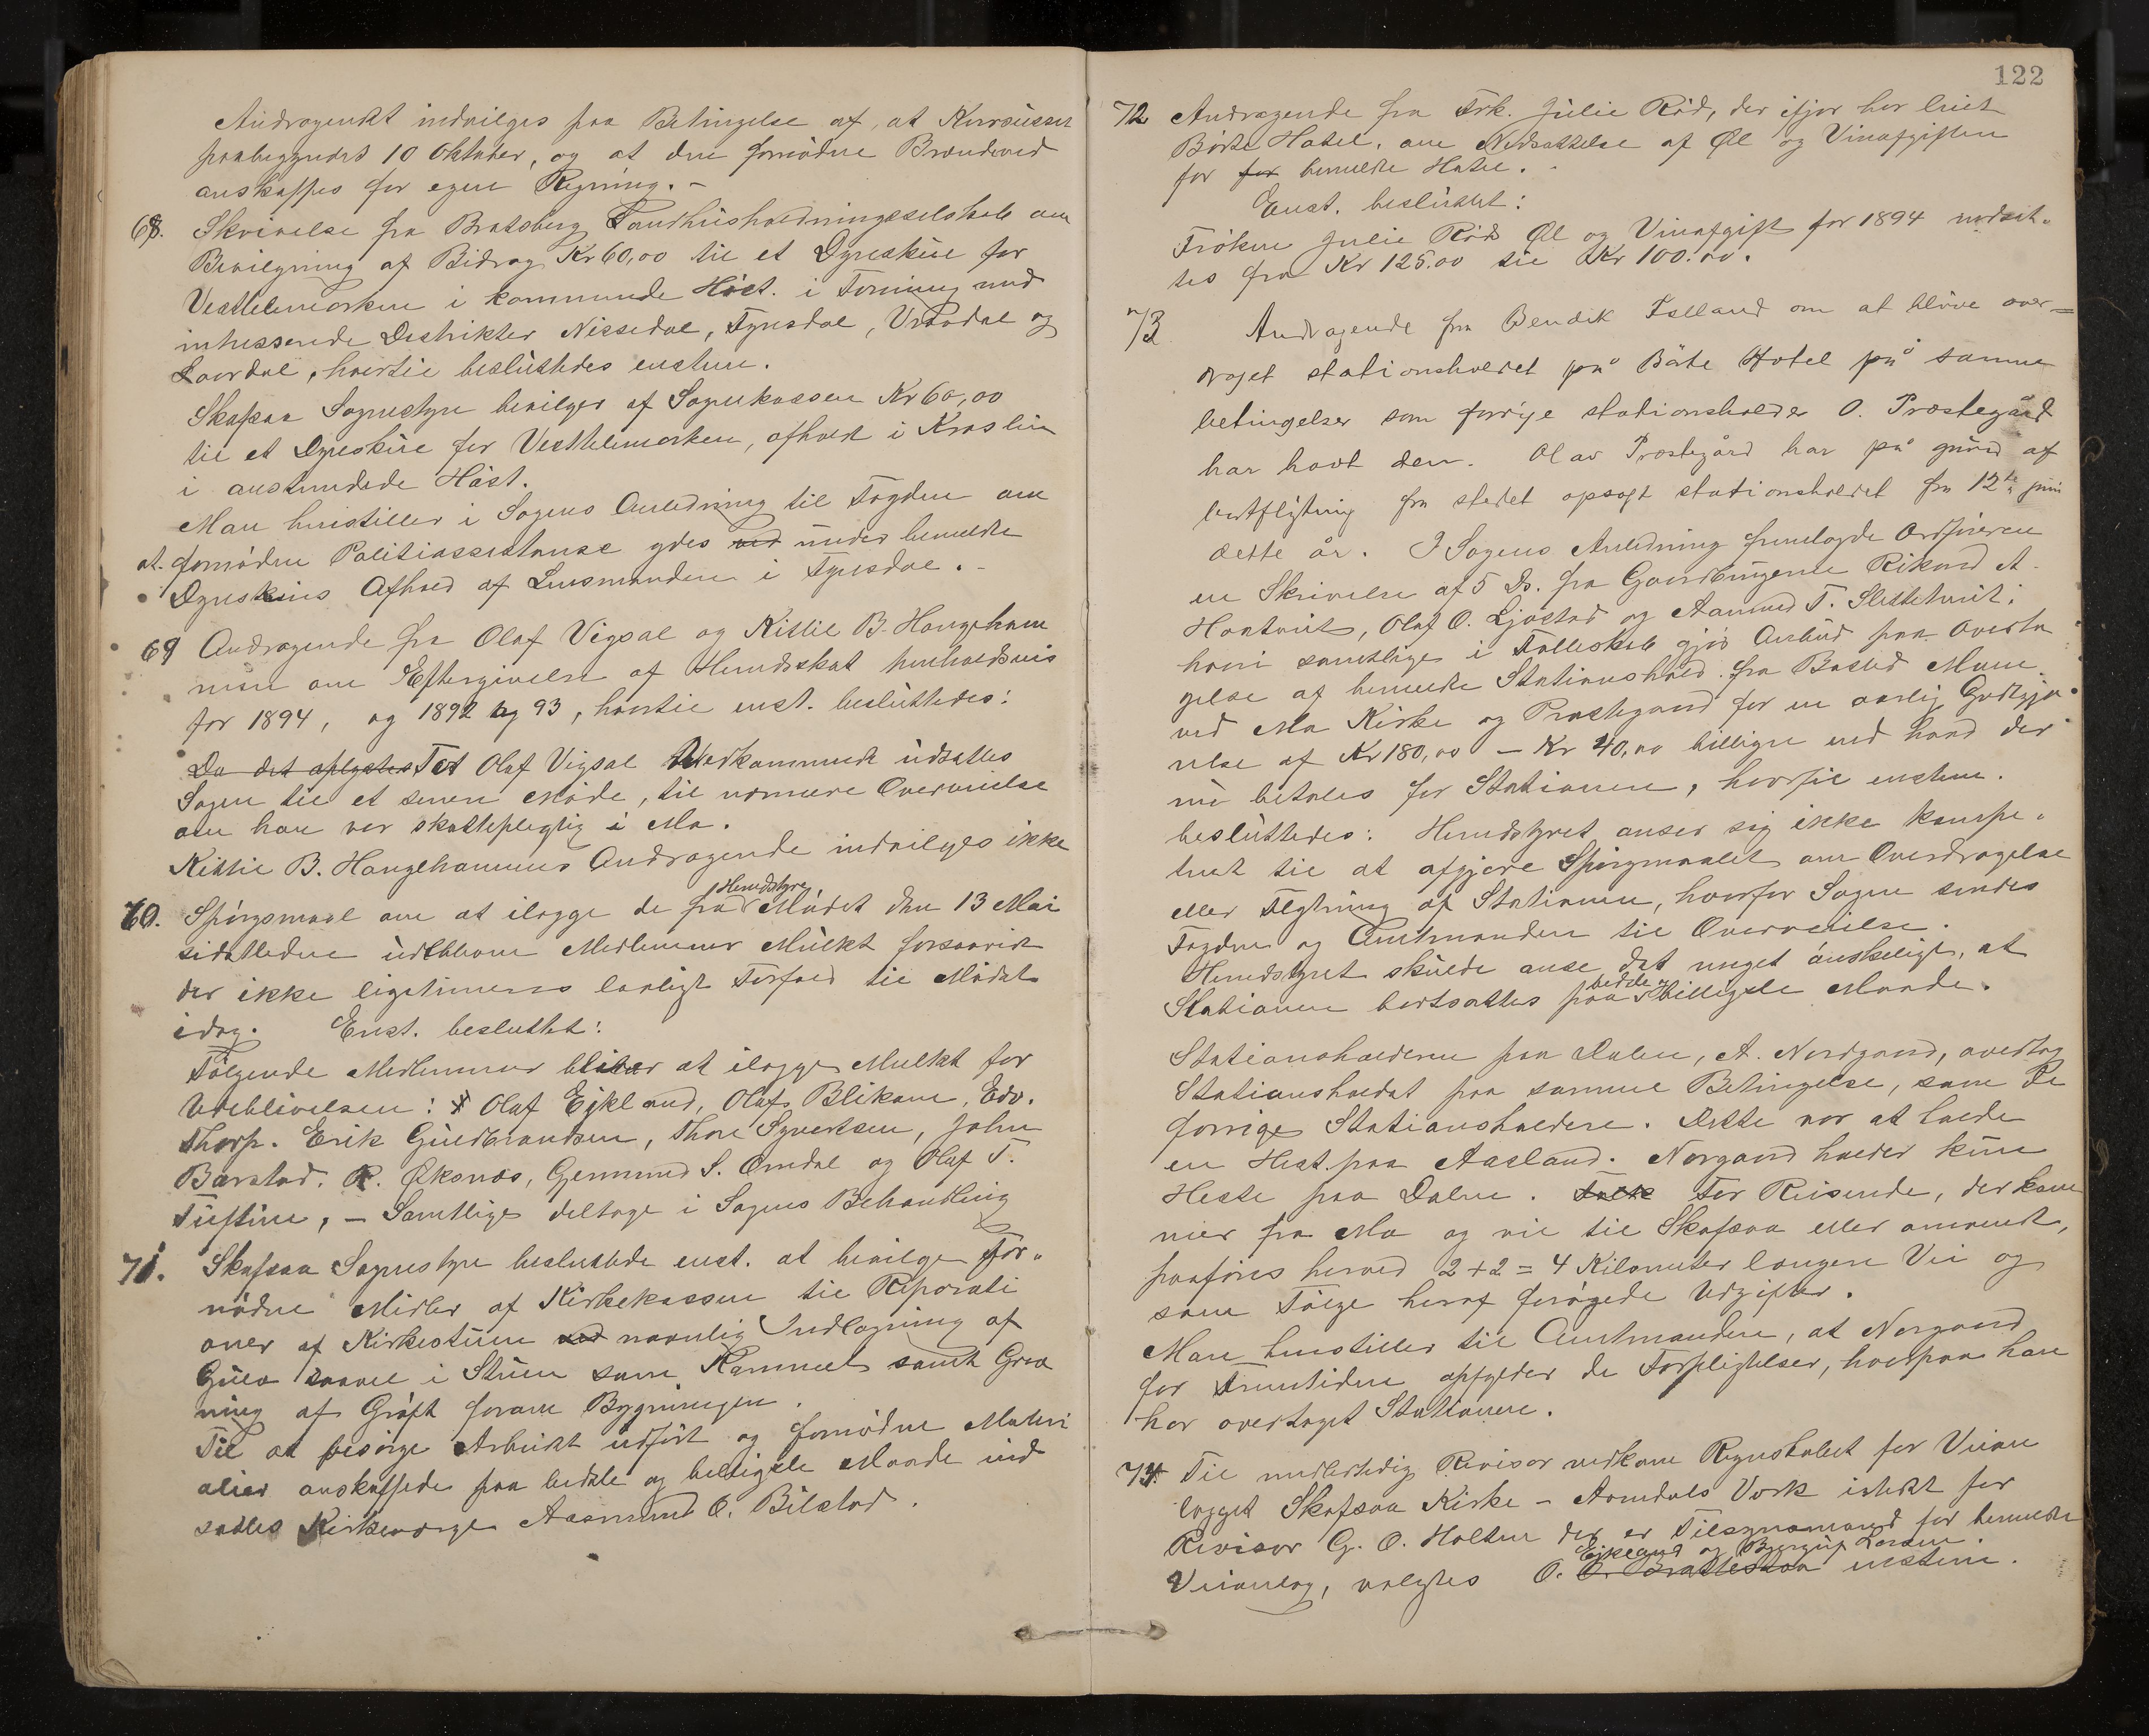 Andragendet indvilges paa Betingelse af, at Kursusset
paabegyndes 10 Oktober, og at den fornødne Brændeved
anskaffes for egen Regning. -
68. Skrivelse fra Bratsberg Landhusholdningsselskab om
Bevilgning af Bidrag Kr 60,00 til et Dyrskue for
Vesttelemarken i kommende Høst. i Forening med
interesserede Distrikter Nissedal, Fyresdal, Vraadal og
Laardal, hvortil besluttedes enstem.
Skafsaa Sognestyre bevilger af Sognekassen Kr 60,00
til et Dyrskue for Vesttelemarken, afholdt i Kroslin
i anstundede Høst.
Man henstiller i Sagens Anledning til Fogden om
at fornøden Politiassistanse ydes ved under bemeldte
Dyrskues Afhold af Lensmanden i Fyresdal. -
69 Andragende fra Olaf Vigsal og Kittil B. Haugeham
men om Eftergivelse af Herredsskat henholdsvis
for 1894, og 1892 og 93, hvortil enst. besluttedes:
Da det oplystes For Olaf Vigsal Vedkommende udsattes
Sagen til et senere Møde, til nærmere Overveielse
om han var skattepligtig i Mo.
Kittil B. Haugehammens Andragende indvilges ikke
70. Spørgsmaal om at ilægge de fra Herredsstyre Mødet den 13 Mai
sidstleden udeblevne Medlemmer Mulkt forsaavidt
der ikke legitimeres lovligt Forfald til Mødet
idag. Enst. besluttet:
Følgende Medlemmer bliver at ilægge Mulkt for
Udeblivelsen: Olaf Ejkland, Olaf Blikom, Edv.
Thorp. Erik Guldbrandsen, Thore Syvertsen, John
Barstad. R. Øksnæs, Germund S. Omdal og Olaf T.
Tuftine, - Samtlige deltoge i Sagens Behandling
71. Skafsaa Sognestyre besluttede enst. at bevilge for-
nødne Midler af Kirkekassen til Reparati
oner af Kirkestuen ved navnlig Indlægning af
Gulv saavel i Stuen som Kammeret samt Grav
ning af Grøft foran Bygningen.
Til at besørge Arbeidet udført og fornødne Materi
alier anskaffede paa bedste og billigste Maade ind
sattes Kirkeværge Aasmund O. Bilstad.
122
72 Andragende fra Frk. Julie Rød, der ifjor har leiet
Børte Hotel. om Nedsættelse af Øl og Vinafgiften
for for bemeldte Hotel. -
Enst. besluttet:
Frøken Julie Røds Øl og Vinafgift for 1894 nedsæt-
tes fra Kr 125.00 til Kr 100.00.
73 Andragende fra Bendik Felland om at blive over=
draget stationsholdet på Börte Hotel på samme
betingelser som forrige stationsholder O. Præstegård
har havt den. Olav Præstegård har på grund af
bortflytning fra stedet opsagt stationsholdet fra 12te juni
dette år. I Sagens Anledning fremlagde Ordføreren
en Skrivelse af 5 ds. fra Gaardbrugerne Rikard A.
Haatveit, Olaf O. Ljøstad og Aamund T. Slettetveit;
hvori samtlige i Fællesskab gjør Anbud paa Overta
gelse af bemeldte Stationshold fra Bosted Moen
ved Mo Kirke og Præstegaard for en aarlig Godtgjø
relse af Kr 180,00 - Kr 40,00 billigere end hvad der
nu betales for Stationen, hvortil enstem.
besluttedes: Herredstyret anser sig ikke kompe-
tent til at afgjøre Spørgsmaalet om Overdragelse
eller Flytning af Stationen, hvorfor Sagen sendes
Fogden og Amtmanden til Overveielse.
Herredstyret skulde anse det meget ønskeligt, at
Stationen bortsattes paa bedste og billigste Maade.
Stationsholderen paa Dalen, A. Nordgaard, overtog
Stationsholdet paa samme Betingelse, som De
forrige Stationsholdere. Dette var at holde
en Hest paa Aasland. Norgaard holder kun
Heste paa Dalen. For Reisende, der kom
mer fra Mo og vil til Skafsaa eller omvendt,
paaføres herved 2 + 2 = 4 Kilometer længere Vei og
som Følge heraf forøgede Udgifter.
Man henstiller til Amtmanden, at Norgaard
for Fremtiden opfylder de Forpligtelser, hvorpaa han
har overtaget Stationen.
74. Til midlertidig Revisor vedkom Regnskabet for Veian
lægget Skafsaa Kirke - Aamdals Værk istedet for
Revisor G. O. Holten der er Tilsynsmand for bemeldte
Veianlæg, valgtes O. Ejkland enstem.